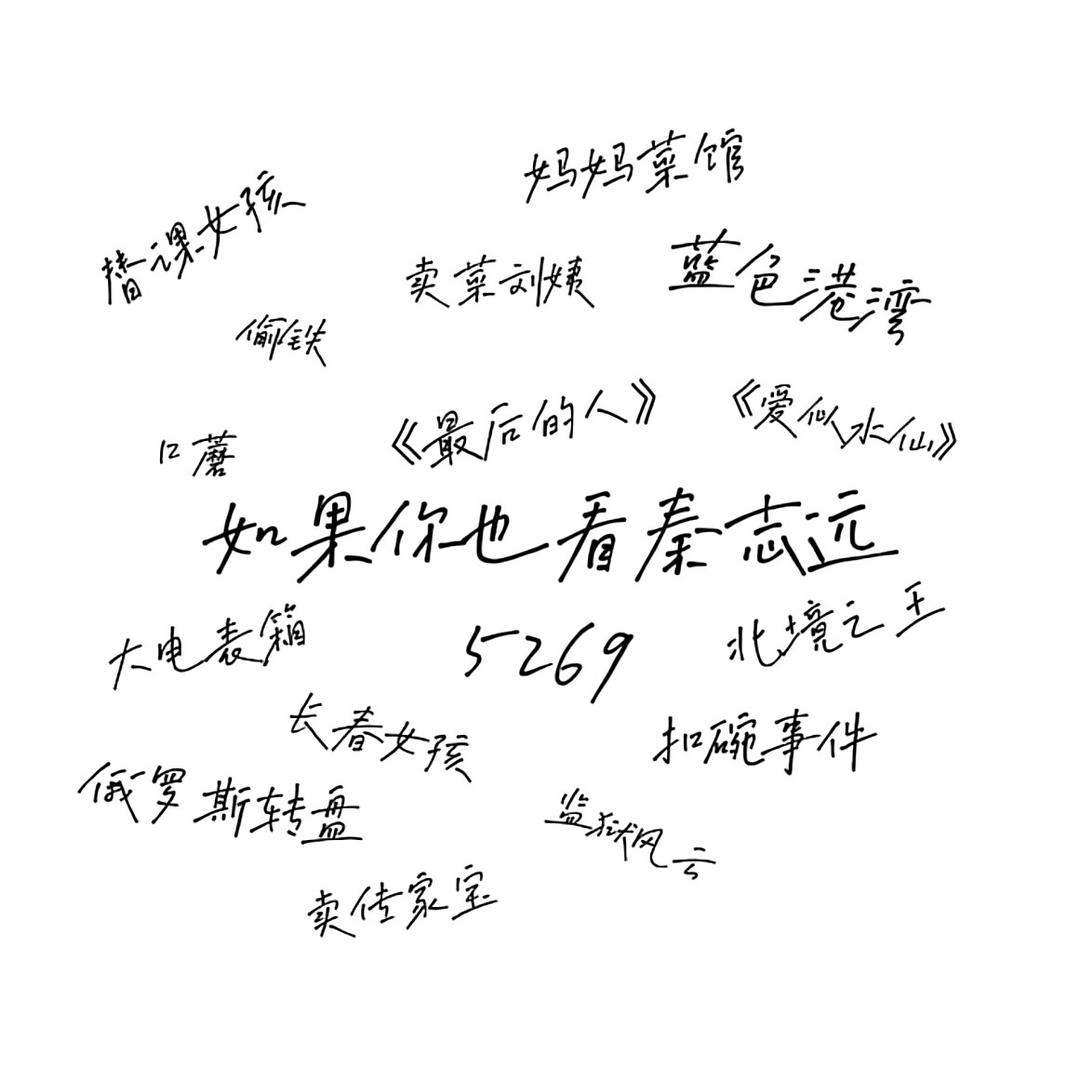 妈妈菜馆
替课女孩
卖菜刘姨
蓝色港湾
偷铁
《最后的人》
《爱似水仙》
口蘑
如果你也看秦志远
大电表箱
5269
北境之王
长春女孩
扣碗事件
俄罗斯转盘
监狱风云
卖传家宝